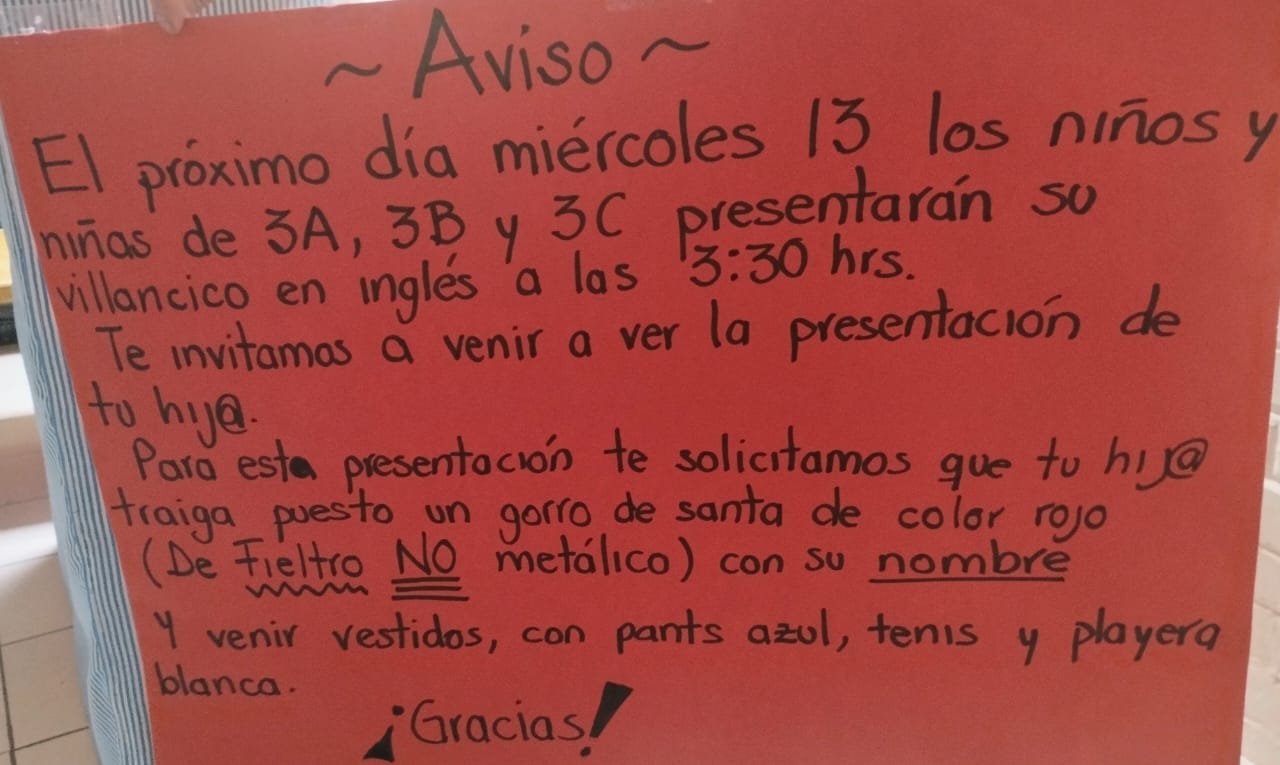 ~ Aviso ~
El próximo día miércoles 13 los niños y
niñas de 3A, 3B y 3C presentarán su
villancico en inglés a las 3:30 hrs.
Te invitamos a venir a ver la presentación de
tu hij@.
Para esta presentación te solicitamos que tu hij@
traiga puesto un gorro de santa de color rojo
(De Fieltro NO metálico) con su nombre
Y venir vestidos, con pants azul, tenis y playera
blanca.
¡Gracias!